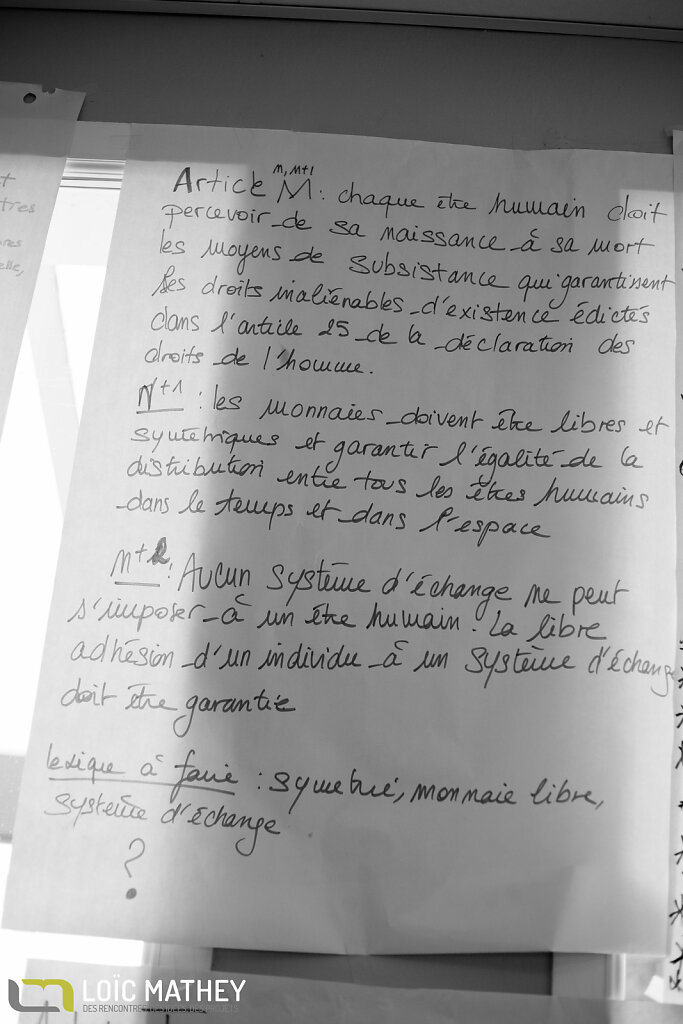 t
tres
elle,
m, m+1
Article M : chaque être humain doit
percevoir de sa naissance à sa mort
les moyens de subsistance qui garantissent
ses droits inaliénables d'existence édictés
dans l'article 25 de la déclaration des
droits de l'homme.
N+1 : les monnaies doivent être libres et
symetriques et garantir l'égalité de la
distribution entre tous les êtres humains
dans le temps et dans l'espace
m+2 : Aucun système d'échange ne peut
s'imposer à un être humain. La libre
adhésion d'un individu à un système d'échange
doit être garantie
lexique à faire : symetrie, monnaie libre,
système d'échange
?
LOÏC MATHEY
DES RENCONTRES, DES IDÉES, DES PROJETS